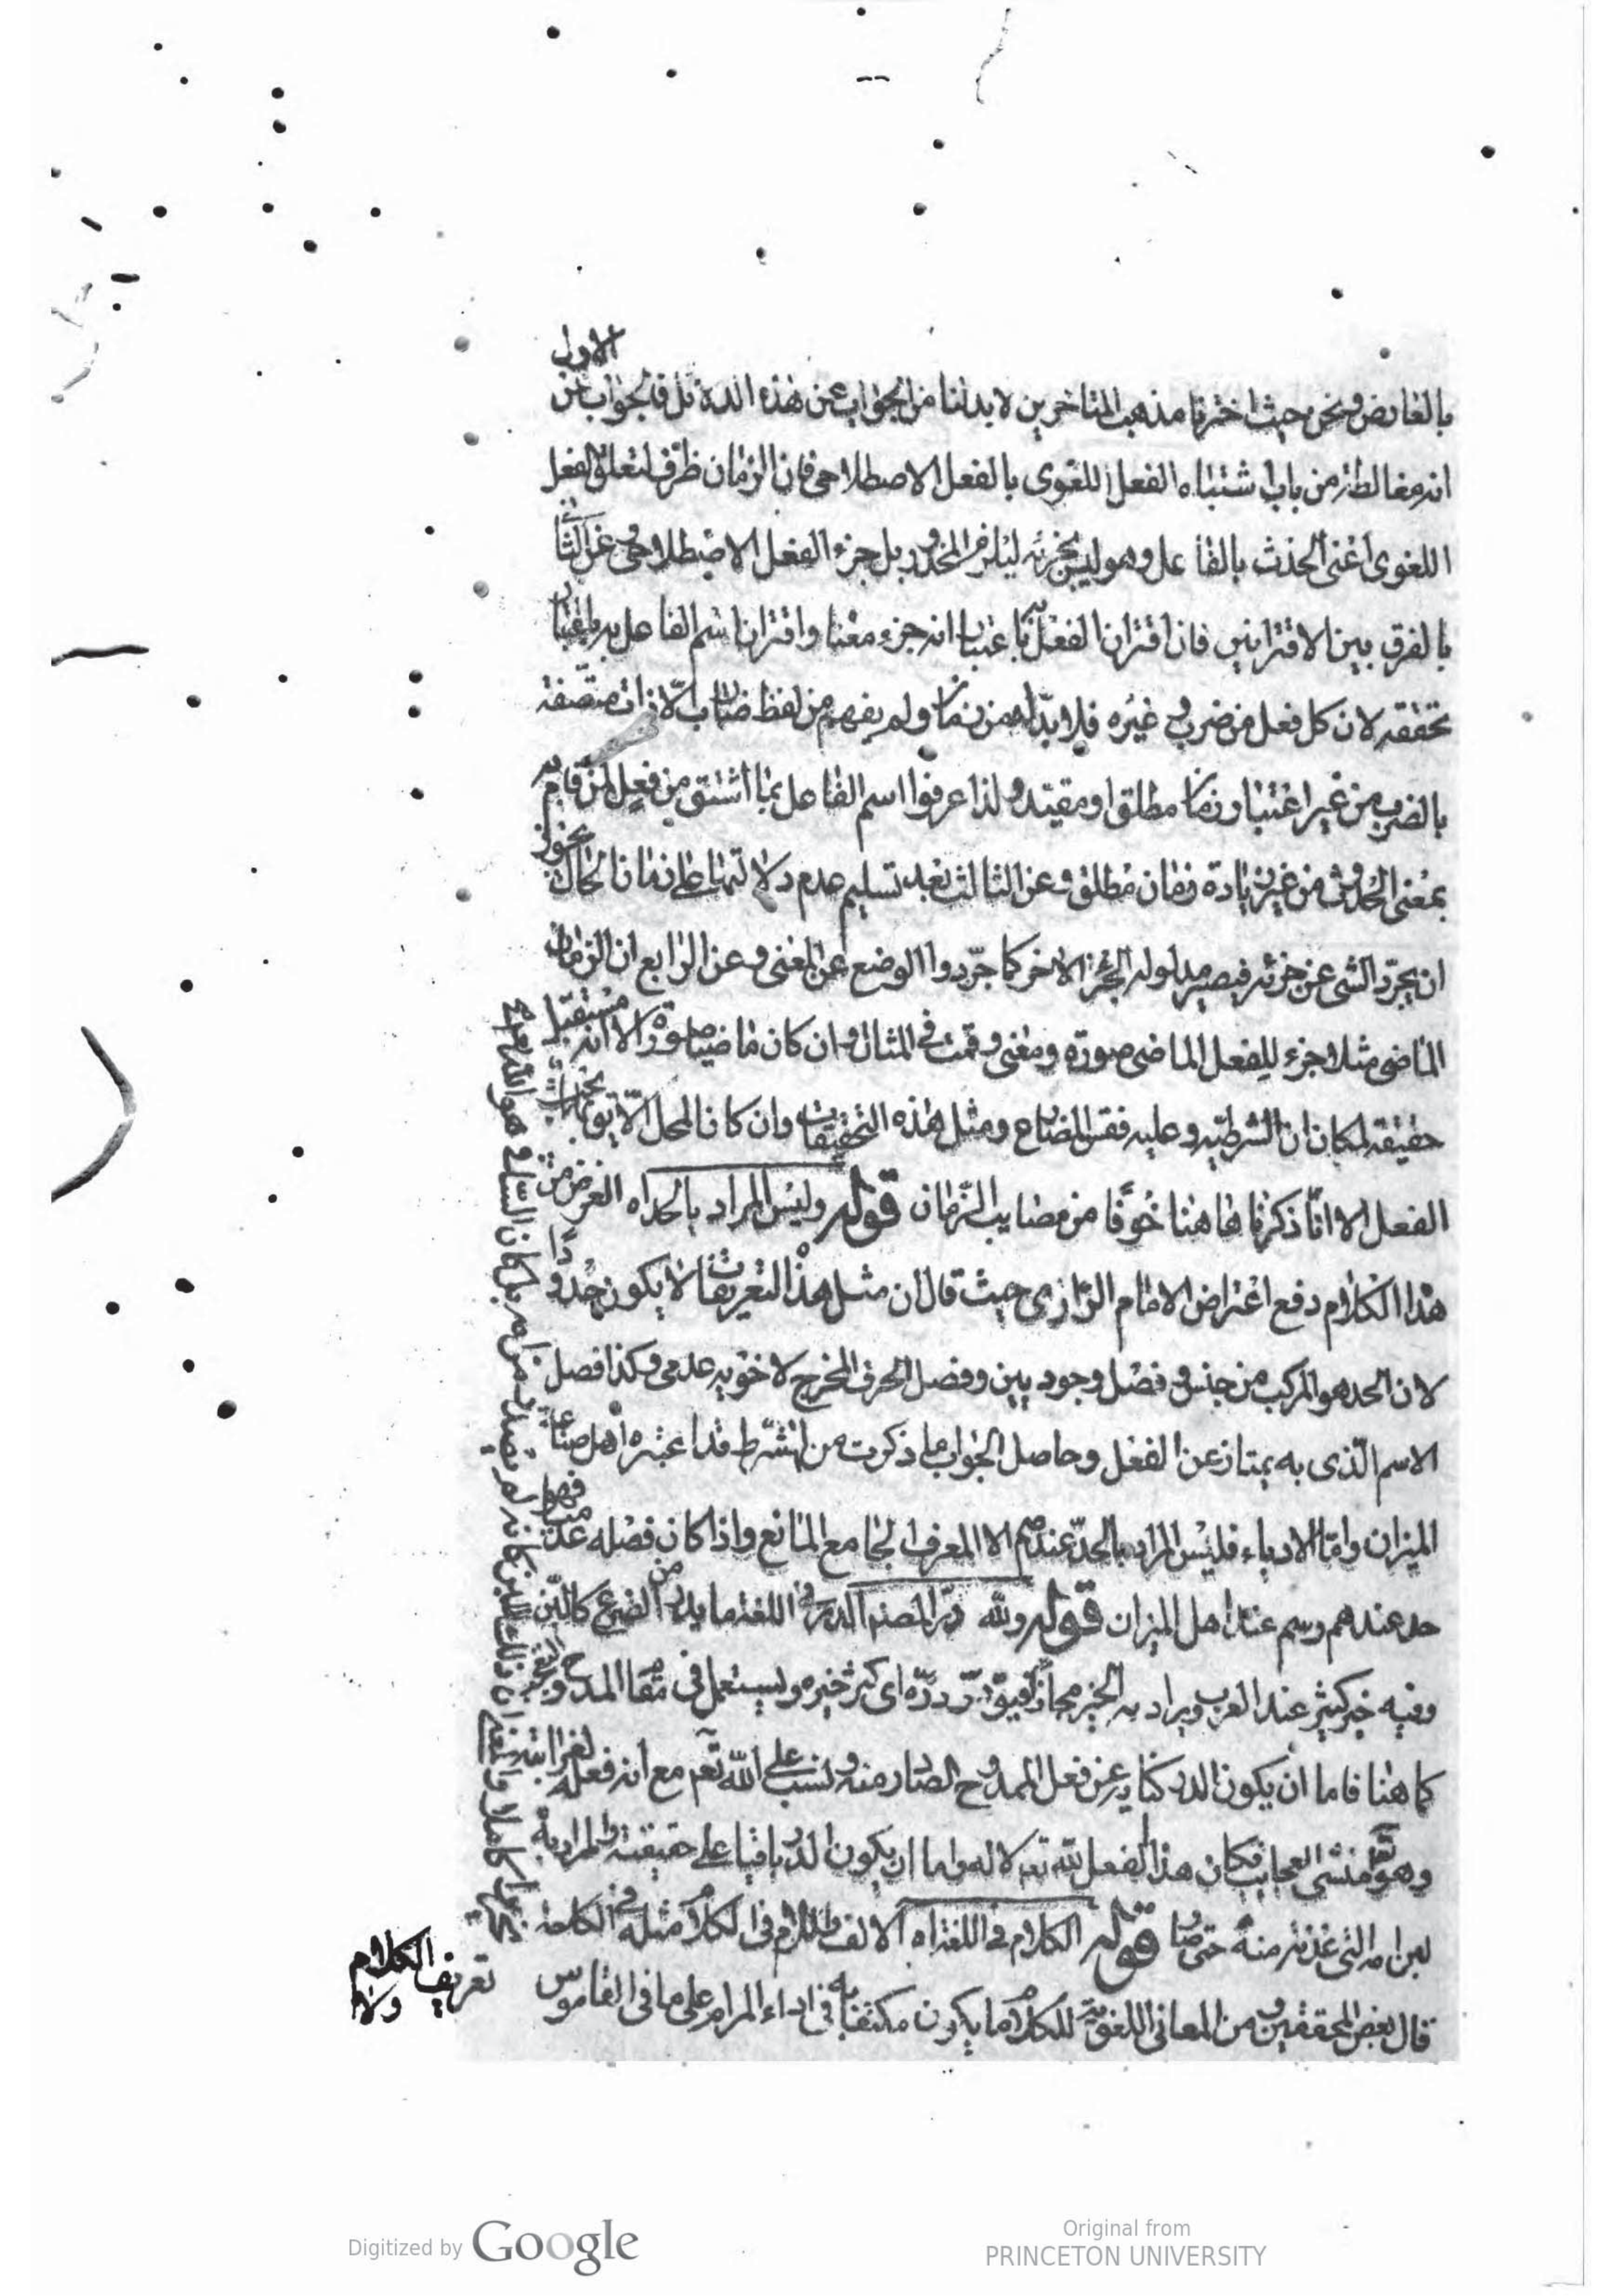 بالعارض ونحن حيث اخترنا مذهب المتاخرين لا بد لنا من الجواب عن هذه الادلة كل فالجواب عن الاول
انه مغالطة من باب اشتباه الفعل اللغوى بالفعل الاصطلاحى فان الزمان ظرف لتعلق الفعل
اللغوى اعنى الحدث بالفاعل وهو ليس بجزئه ليلزم المحذور بل جزء الفعل الاصطلاحى وعن الثانى
بالفرق بين الاقترانين فان اقتران الفعل باعتبار انه جزء معناه واقتران اسم الفاعل به باعتبار
تحققه لان كل فعل من ضرب وغيره فلا بد له من زمان ولم يفهم من لفظ ضارب الا ذات متصفة
بالضرب من غير اعتبار زمان مطلق او مقيد ولذا عرفوا اسم الفاعل بما اشتق من فعل لمن قام به
بمعنى الحدوث من غير زيادة زمان مطلق وعن الثالث بعد تسليم عدم دلالتها على زمان الحال يجوز
ان يجرد الشى عن جزئه فيصير مدلوله الجزء الاخر كما جردوا الوضع عن المعنى وعن الرابع ان الزمان
الماضى مثلا جزء للفعل الماضى صورة ومعنى وقمت فى المثال وان كان ماضيا صورة الا انه مستقبل
حقيقة لمكان ان الشرطية وعليه فقس المضارع ومثل هذه التحقيقات وان كان المحل الاليق بها بحث
الفعل الا انا ذكرناها هنا خوفا من مصايب الزمان قوله وليس المراد بالحد اه الغرض من
هذا الكلام دفع اعتراض الامام الرازى حيث قال ان مثل هذه التعريفات لا يكون حدودا
لان الحد هو المركب من جنس وفصل وجوديين وفصل الحرف المخرج لاخويه عدمى وكذا فصل
الاسم الذى به يمتاز عن الفعل وحاصل الجواب ما ذكرت من الشرط قد اعتبره اهل صناعة
الميزان واما الادباء فليس المراد بالحد عندهم الا المعرف الجامع المانع واذا كان فصله عدميا فهو
حد عندهم ورسم عند اهل الميزان قوله ولله در المصنف الدر فى اللغة ما يدر من الضرع كاللبن
وفيه خير كثير عند العرب ويراد به الخير مجازا فيقال در دره اى كثر خيره ويستعمل فى مقام المدح والتعجب
كما هنا فاما ان يكون الدر كناية عن فعل الممدوح الصادر منه ونسب على الله تعم مع انه فعله لغرابته
وهو تعم منشى العجايب فكان هذا الفعل لله تعم لا له واما ان يكون الدر باقيا على حقيقته والمراد به
لبن امه التى غذته منه حتى صار قوله الكلام فى اللغة اه الالف واللام فى الكلام مثله فى الكلمة
قال بعض المحققين من المعانى اللغوية للكلام ما يكون مكتفيا به فى اداء المرام على ما فى القاموس
تعريف الكلام